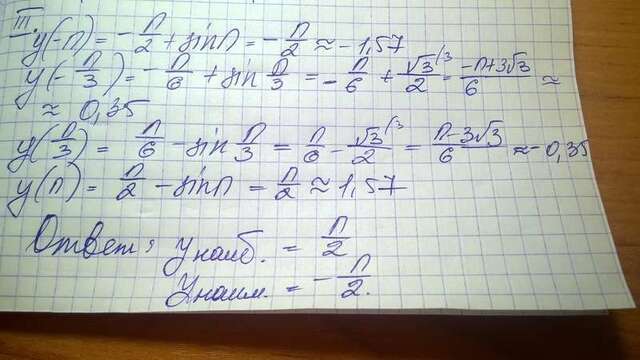 III.
y(-π) = -π/2 + sinπ = -π/2 ≈ -1,57
y(-π/3) = -π/6 + sin π/3 = -π/6 + √3/2 /3 = (-π+3√3)/6 ≈
≈ 0,35
y(π/3) = π/6 - sin π/3 = π/6 - √3/2 /3 = (π-3√3)/6 ≈ -0,35
y(π) = π/2 - sinπ = π/2 ≈ 1,57
Ответ: y наиб. = π/2
y наим. = -π/2.